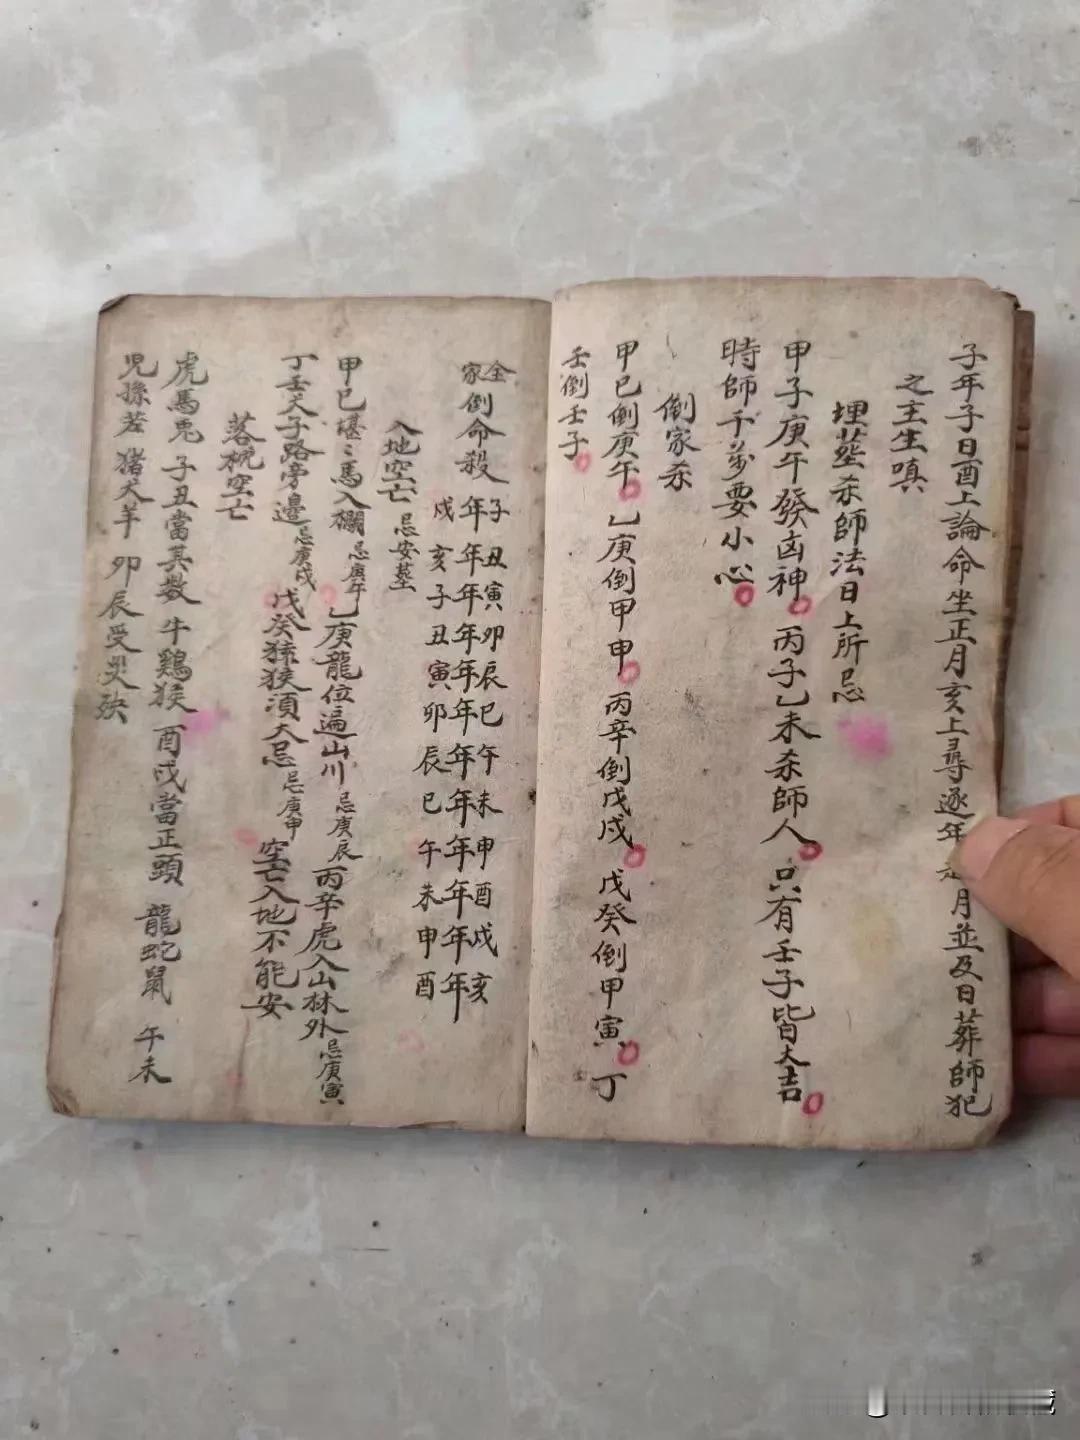 子年子日酉上論命坐正月亥上尋逐年 月並及日葬師犯
之主生嗔
埋𦵏杀師法日上所忌
甲子庚午發凶神丙子乙未杀師人只有壬子皆大吉
時師千萬要小心
倒家杀
甲巳倒庚午乙庚倒甲申丙辛倒戊戌戊癸倒甲寅丁
壬倒壬子
全家倒命殺
子年戌
丑年亥
寅年子
卯年丑
辰年寅
巳年卯
午年辰
未年巳
申年午
酉年未
戌年申
亥年酉
入地空亡 忌安𦵏
甲巳堪〻馬入欄忌庚午乙庚龍位遍山川忌庚辰丙辛虎入山林外忌庚寅
丁壬犬子路旁邊忌庚戌戊癸猿猴須大忌忌庚申空亡入地不能安
落枕空亡
虎馬兎子丑當其数牛鷄猴酉戌當正頭龍蛇鼠午未
児孫差猪犬羊卯辰受災殃